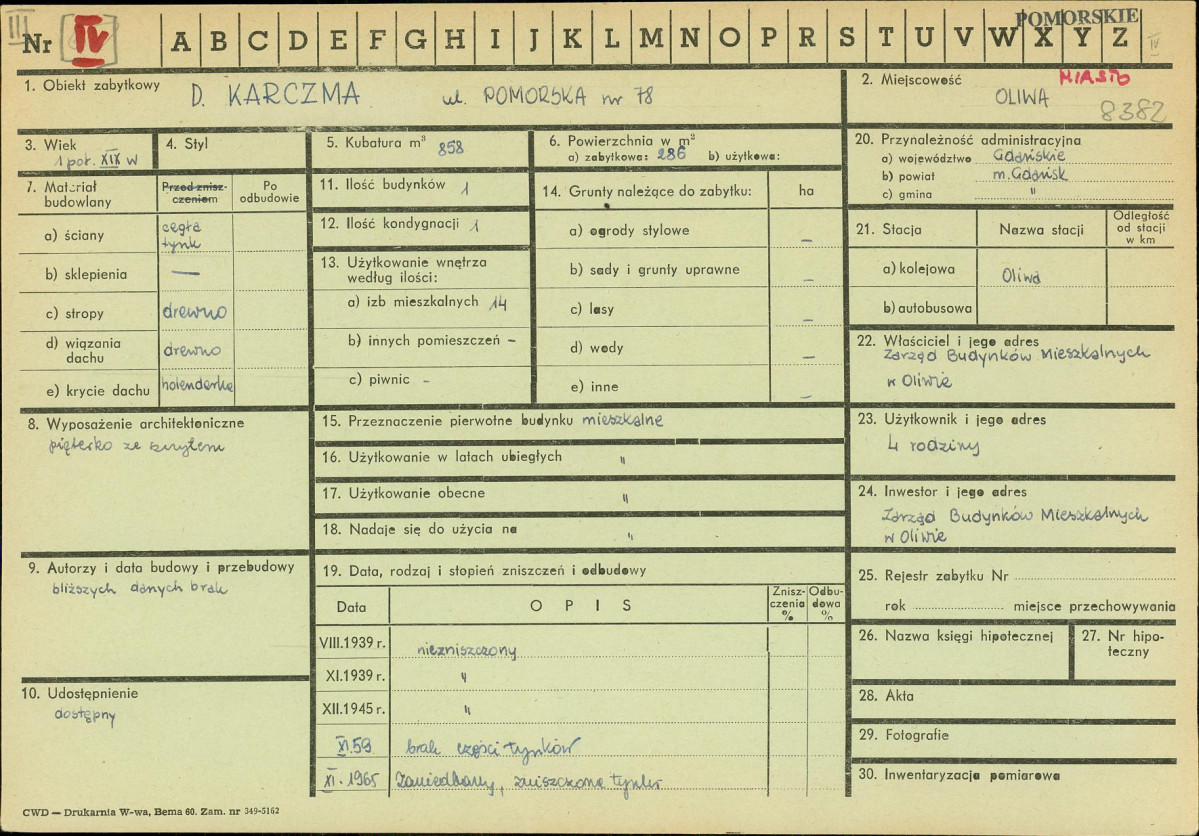 III
Nr IV A B C D E F G H I J K L M N O P R S T U V W X Y Z
POMORSKIE
IV
1. Obiekt zabytkowy D. KARCZMA ul. POMORSKA nr 78
2. Miejscowość MIASTO
OLIWA
8382
3. Wiek
1 poł. XIX w
4. Styl
5. Kubatura m³ 858
6. Powierzchnia w m²
a) zabytkowa: 286 b) użytkowa:
20. Przynależność administracyjna
a) województwo Gdańskie
b) powiat m. Gdańsk
c) gmina "
7. Materiał budowlany
Przed zniszczeniem
Po odbudowie
a) ściany cegła tynk
b) sklepienia —
c) stropy drewno
d) wiązania dachu drewno
e) krycie dachu holenderka
11. Ilość budynków 1
12. Ilość kondygnacji 1
13. Użytkowanie wnętrza
według ilości:
a) izb mieszkalnych 14
b) innych pomieszczeń –
c) piwnic -
14. Grunty należące do zabytku: ha
a) ogrody stylowe –
b) sady i grunty uprawne –
c) lasy –
d) wody –
e) inne –
21. Stacja Nazwa stacji Odległość od stacji w km
a) kolejowa Oliwa
b) autobusowa
22. Właściciel i jego adres
Zarząd Budynków Mieszkalnych
w Oliwie
8. Wyposażenie architektoniczne
pięterko ze
15. Przeznaczenie pierwotne budynku mieszkalne
16. Użytkowanie w latach ubiegłych "
17. Użytkowanie obecne "
18. Nadaje się do użycia na "
23. Użytkownik i jego adres
4 rodziny
24. Inwestor i jego adres
Zarząd Budynków Mieszkalnych
w Oliwie
9. Autorzy i data budowy i przebudowy
bliższych danych brak
10. Udostępnienie
dostępny
19. Data, rodzaj i stopień zniszczeń i odbudowy
Data OPIS Zniszczenia % Odbudowa %
VIII.1939 r. niezniszczony
XI.1939 r. "
XII.1945 r. "
XI.59 brak części tynków
XI.1965 Zaniedbany, zniszczone tynki
25. Rejestr zabytku Nr
rok miejsce przechowywania
26. Nazwa księgi hipotecznej
27. Nr hipoteczny
28. Akta
29. Fotografie
30. Inwentaryzacja pomiarowa
CWD — Drukarnia W-wa, Bema 60. Zam. nr 349-5162